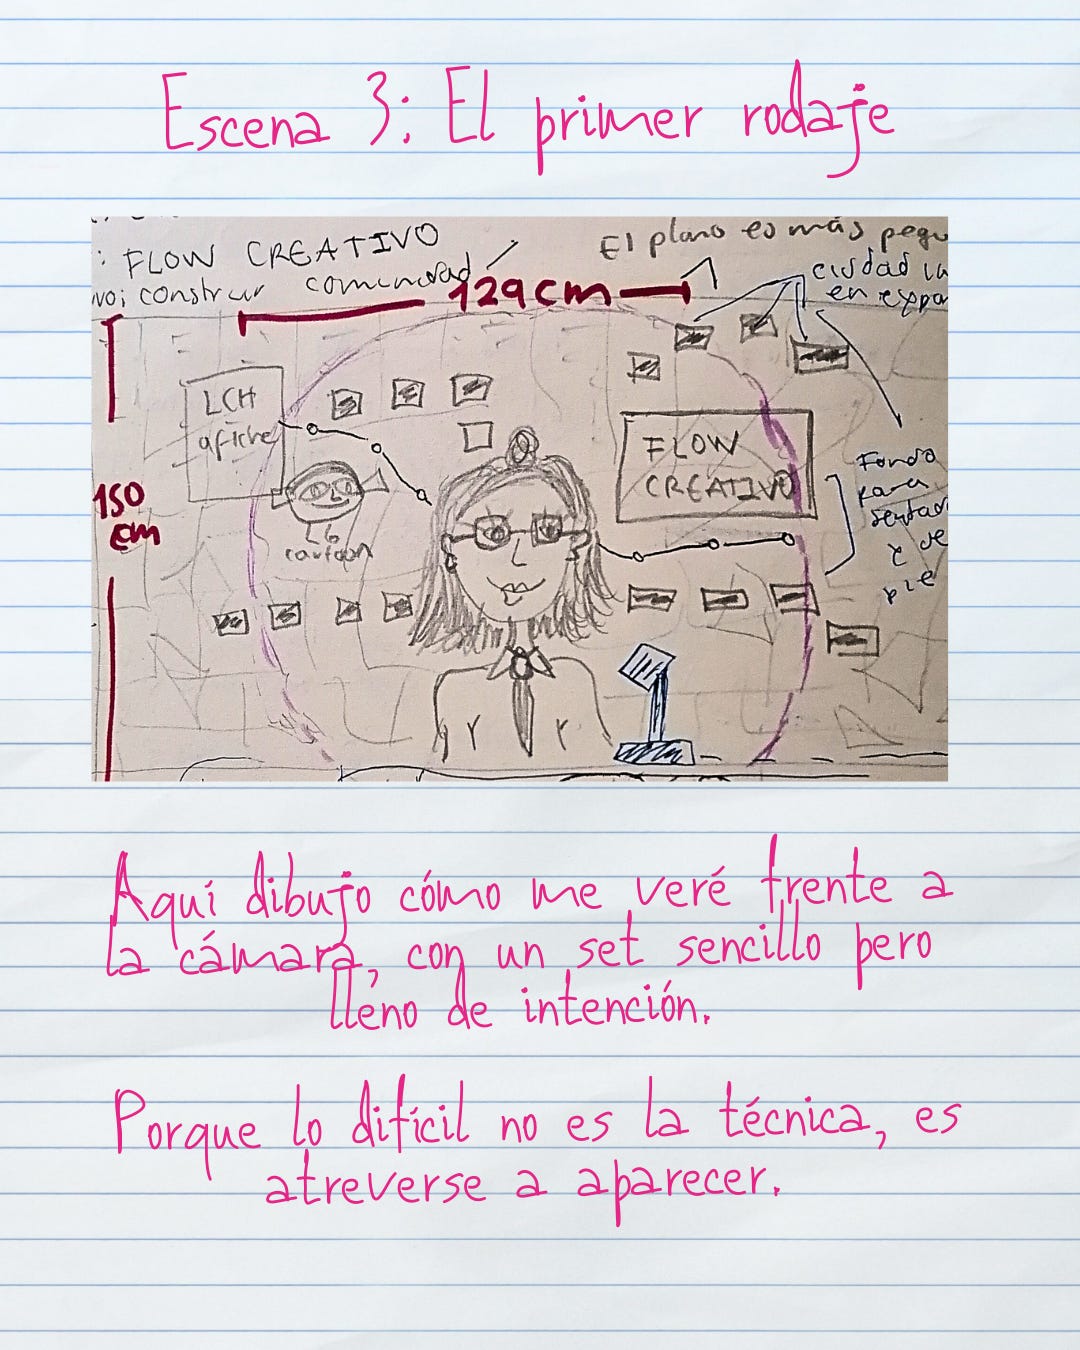 Escena 3: El primer rodaje
: FLOW CREATIVO
voi construir comunidad
El plano es más pequ
129cm
ciudad
en expan
LCH
afiche
FLOW
CREATIVO
Fondo
para
sentado
y de
pie
150
cm
LG
cartoon
Aquí dibujo cómo me veré frente a
la cámara, con un set sencillo pero
lleno de intención.
Porque lo difícil no es la técnica, es
atreverse a aparecer.